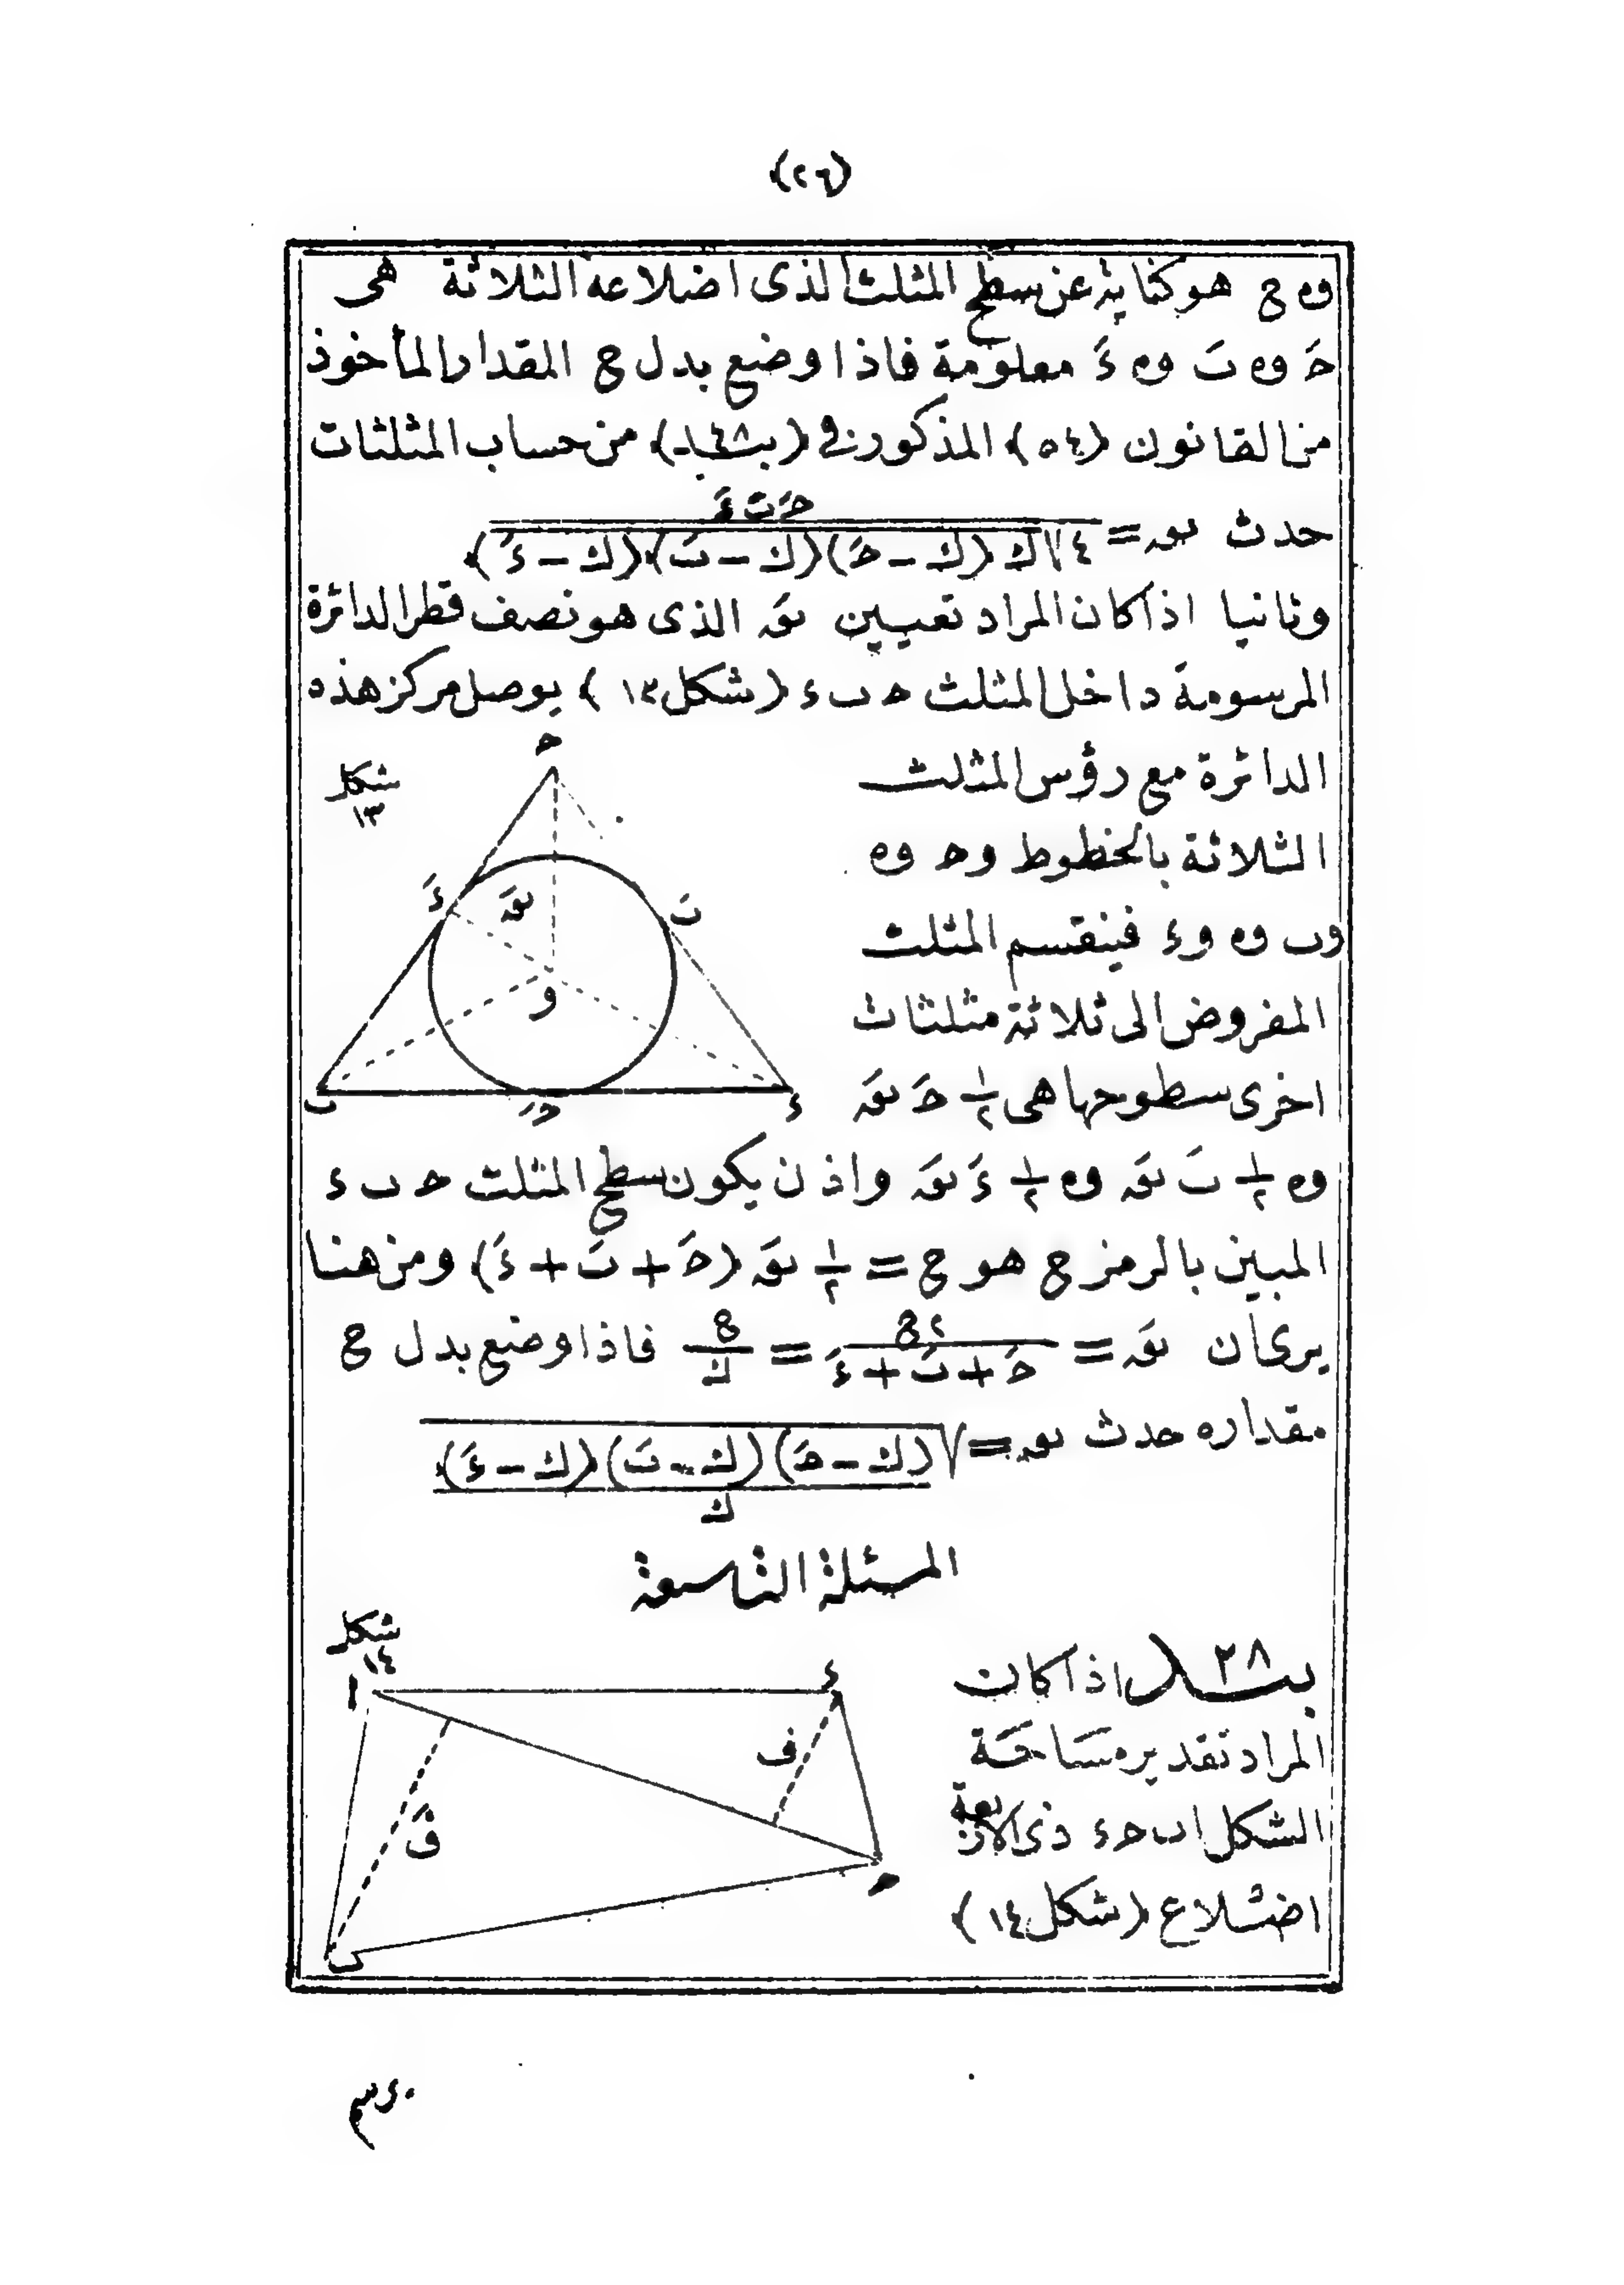 (٢٦)
وه ح هو كناية عن سطح المثلث الذى اضلاعه الثلاثة هى
حَ وه بَ وه ءَ معلومة فاذا وضع بدل ح المقدار المأخوذ
من القانون (٥٤) المذكور فى (بند ٤٨) من حساب المثلثات
حدث نق = حَ بَ ءَ / ٤√ك(ك-حَ)(ك-بَ)(ك-ءَ)
وثانيا اذا كان المراد تعيين نقَ الذى هو نصف قطر الدائرة
المرسومة داخل المثلث ح ب ء (شكل ١٣) يوصل مركز هذه
الدائرة مع رؤس المثلث
الثلاثة بالخطوط وح وه
وب وه وء فينقسم المثلث
المفروض الى ثلاثة مثلثات
اخرى سطوحها هى ١/٢ حَ نقَ
شكل
١٣
ح
ءَ
نقَ
بَ
و
ب
حَ
ء
وه ١/٢ بَ نقَ وه ١/٢ ءَ نقَ واذن يكون سطح المثلث ح ب ء
المبين بالرمز ح هو ح = ١/٢ نقَ (حَ + بَ + ءَ) ومن هنا
يرى ان نقَ = ٢ح / حَ + بَ + ءَ = ح / ك فاذا وضع بدل ح
مقداره حدث نق = √(ك-حَ)(ك-بَ)(ك-ءَ) / ك
المسئلة التاسعة
بند ٢٨ اذا كان
المراد تقدير مساحة
الشكل اب ح ء ذى الاربعة
اضلاع (شكل ١٤)
شكل
١٤
ا
ء
ف
فَ
ح
ب